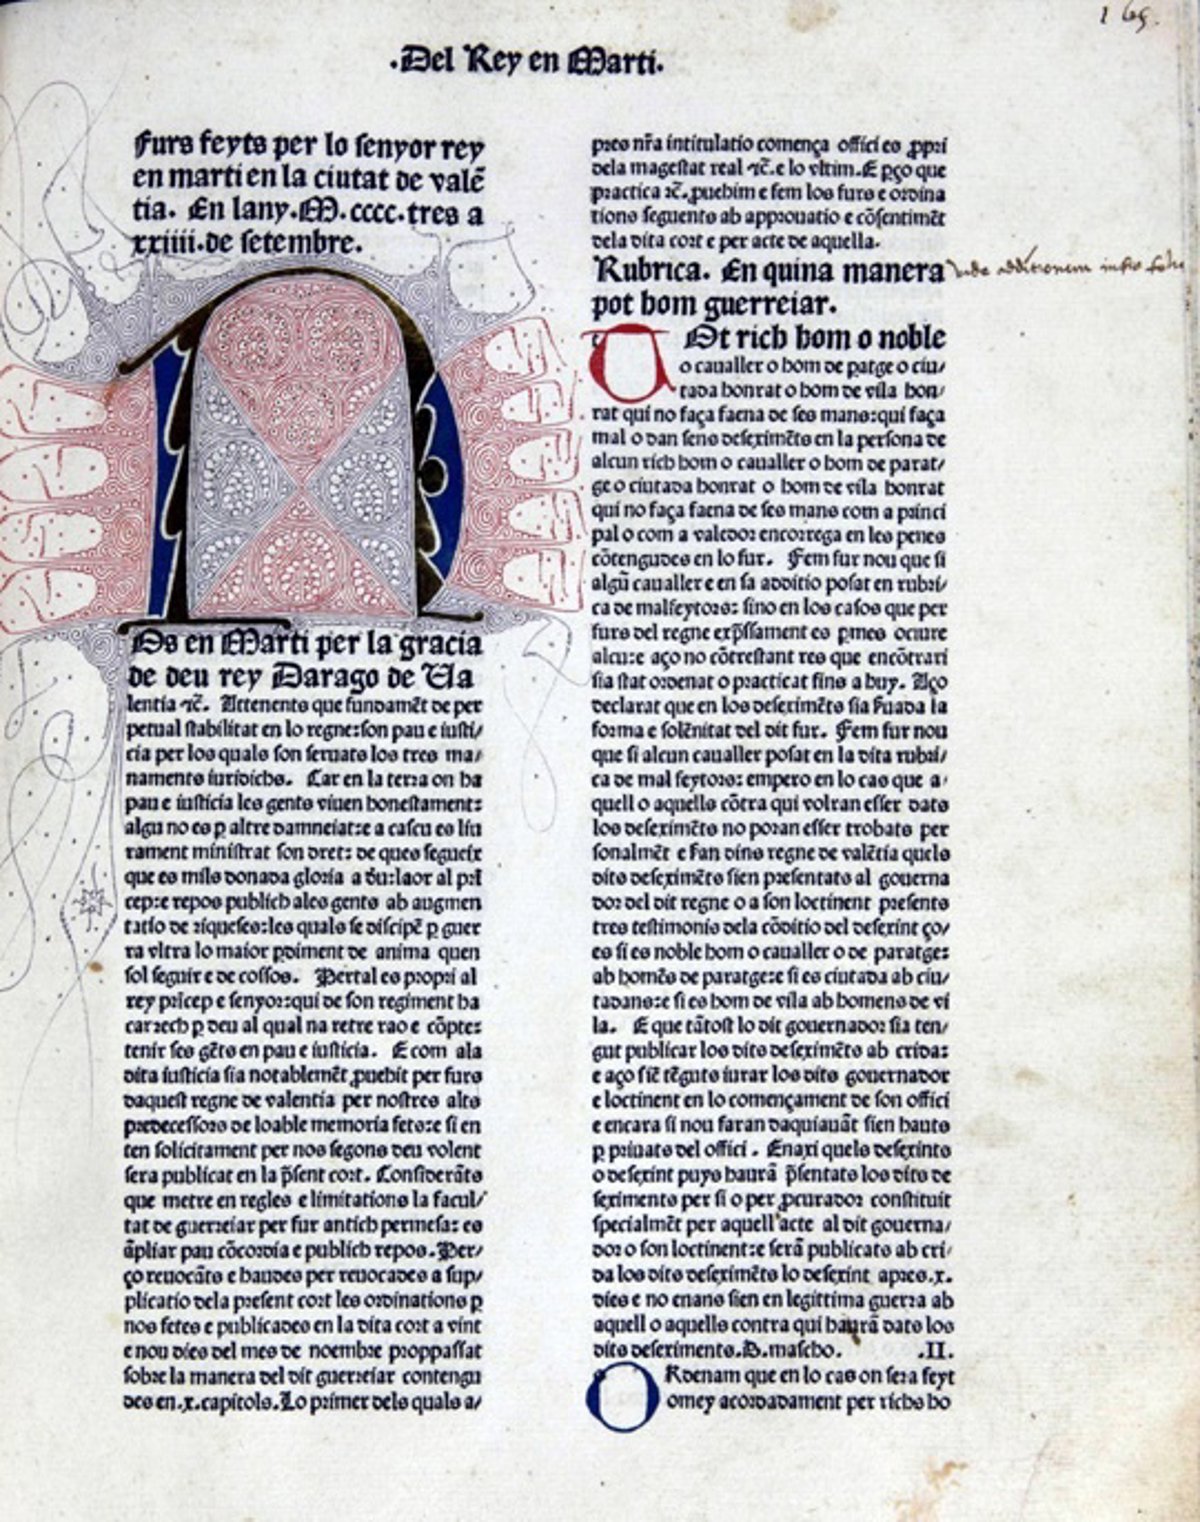 165.
.Del Rey en Marti.
Furs feyts per lo senyor rey
en marti en la ciutat de valẽ
tia. En lany .M. cccc. tres a
xxiiii. de setembre.
NOs en Marti per la gracia
de deu rey Darago de Va
lentia ⁊c̃. Attenents que fundamẽt de per
petual stabilitat en lo regne: son pau e iusti/
cia per los quals son seruats los tres ma/
naments iuridichs. Car en la terra on ha
pau e iusticia les gents viuen honestament:
algu no es ꝑ altre damneiat: e a cascu es liu
rament ministrat son dret: de ques segueix
que es mils donada gloria a du: laor al prĩ
cep: e repos publich ales gents ab augmen
tatio de riqueses: les quals se discipẽ ꝑ guer
ra vltra lo maior ꝑdiment de anima quen
sol seguir e de cossos. Pertal es propri al
rey prĩcep e senyor: qui de son regiment ha
carrech ꝑ deu al qual na retre rao e cõpte:
tenir ses gẽts en pau e iusticia. E com ala
dita iusticia sia notablemẽt ꝓuehit per furs
daquest regne de valentia per nostres alts
predecessors de loable memoria fets: e si en
ten solicitament per nos segons deu volent
sera publicat en la p̃sent cort. Considerãts
que metre en regles e limitations la facul/
tat de guerreiar per fur antich permesa: es
ãpliar pau cõcordia e publich repos. Per/
ço reuocãts e haudes per reuocades a sup/
plicatio dela present cort les ordinations ꝑ
nos fetes e publicades en la dita cort a vint
e nou dies del mes de noembre proppassat
sobre la manera del dit guerreiar contengu
des en .x. capitols. Lo primer dels quals a/
pres nr̃a intitulatio comença offici es ꝓpri
dela magestat real ⁊c̃. e lo vltim. E ꝑço que
practica ⁊c̃. ꝓuehim e fem los furs e ordina
tions seguents ab approuatio e cõsentimẽt
dela dita cort e per acte de aquella.
Rubrica. En quina manera
pot hom guerreiar.
vide additionem infra
TOt rich hom o noble
o caualler o hom de paratge o ciu/
tada honrat o hom de vila hon/
rat qui no faça faena de ses mans: qui faça
mal o dan sens deseximẽts en la persona de
alcun rich hom o caualler o hom de parat/
ge o ciutada honrat o hom de vila honrat
qui no faça faena de ses mans com a princi
pal o com a valedor encorrega en les penes
cõtengudes en lo fur. Fem fur nou que si
algũ caualler e en sa additio posat en rubri/
ca de malfeytors: sino en los casos que per
furs del regne exp̃ssament es ꝑmes ociure
alcu: e aço no cõtrestant res que encõtrari
sia stat ordenat o practicat fins a huy. Aço
declarat que en los deseximẽts sia ſuada la
forma e solẽnitat del dit fur. Fem fur nou
que si alcun caualler posat en la dita rubri/
ca de mal feytors: empero en lo cas que a/
quell o aquells cõtra qui volran esser dats
los deseximẽts no poran esser trobats per
sonalmẽt e ſan dins regne de valẽtia quels
dits deseximẽts sien presentats al gouerna
dor del dit regne o a son loctinent presents
tres testimonis dela cõditio del desexint ço/
es si es noble hom o caualler o de paratge:
ab homẽs de paratge: e si es ciutada ab ciu/
tadans: e si es hom de vila ab homens de vi
la. E que tãtost lo dit gouernador sia ten/
gut publicar los dits deseximẽts ab crida:
e aço siẽ tẽguts iurar los dits gouernador
e loctinent en lo començament de son offici
e encara si nou faran daquiauãt sien hauts
ꝑ priuats del offici. Enaxi quels desexints
o desexint puys haurã p̃sentats los dits de
seximents per si o per ꝓcurador constituit
specialmẽt per aquell acte al dit gouerna/
dor o son loctinent: e serã publicats ab cri/
da los dits deseximẽts lo desexint apres .x.
dies e no enans sien en legittima guerra ab
aquell o aquells contra qui haurã dats los
dits deseximents. B. mascho. .II.
ORdenam que en lo cas on sera feyt
omey acordadament per richs ho